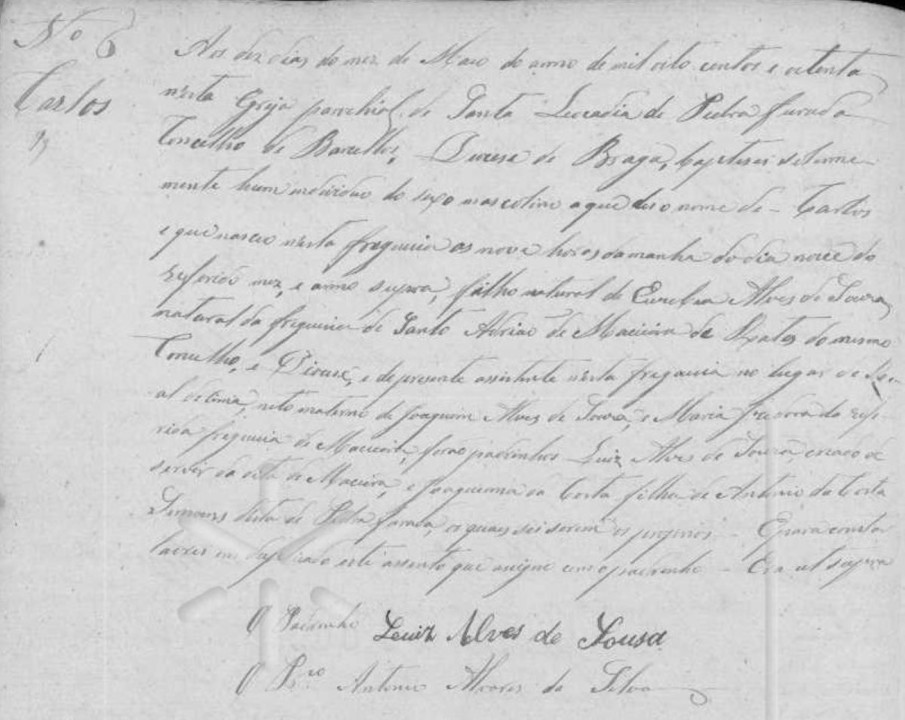 Nº 6
Carlos
Aos dez dias do mez de Maio do anno de mil oito centos e oitenta
n'esta Igreja parochial de Santa Leocadia de Pedra furada
Concelho de Barcellos, Diocese de Braga, baptisei solemne-
mente hum individuo do sexo masculino a que dei o nome de - Carlos
e que nasceo n'esta freguesia as nove horas da manha do dia nove do
referido mez, e anno supra, filho natural de Alves de Souza,
natural da freguesia de Santo Adriao de Macieira de Rates do mesmo
Concelho, e Diocese, e de presente assistente n'esta freguesia no lugar de
al de cima, neto materno de Joaquim Alves de Souza, e Maria da refe-
rida freguesia de Macieira, forão padrinhos Luiz Alves de Souza criado de
servir da dita de Macieira, e Joaquinna da Costa filha de Antonio da Costa
Simoens desta de Pedra furada, os quais sei serem os proprios. - E para constar
lavrei em duplicado este assento que assignei com o padrinho - Era ut supra
O Padrinho Luiz Alves de Sousa
O P.ro Antonio Alvares da Silva